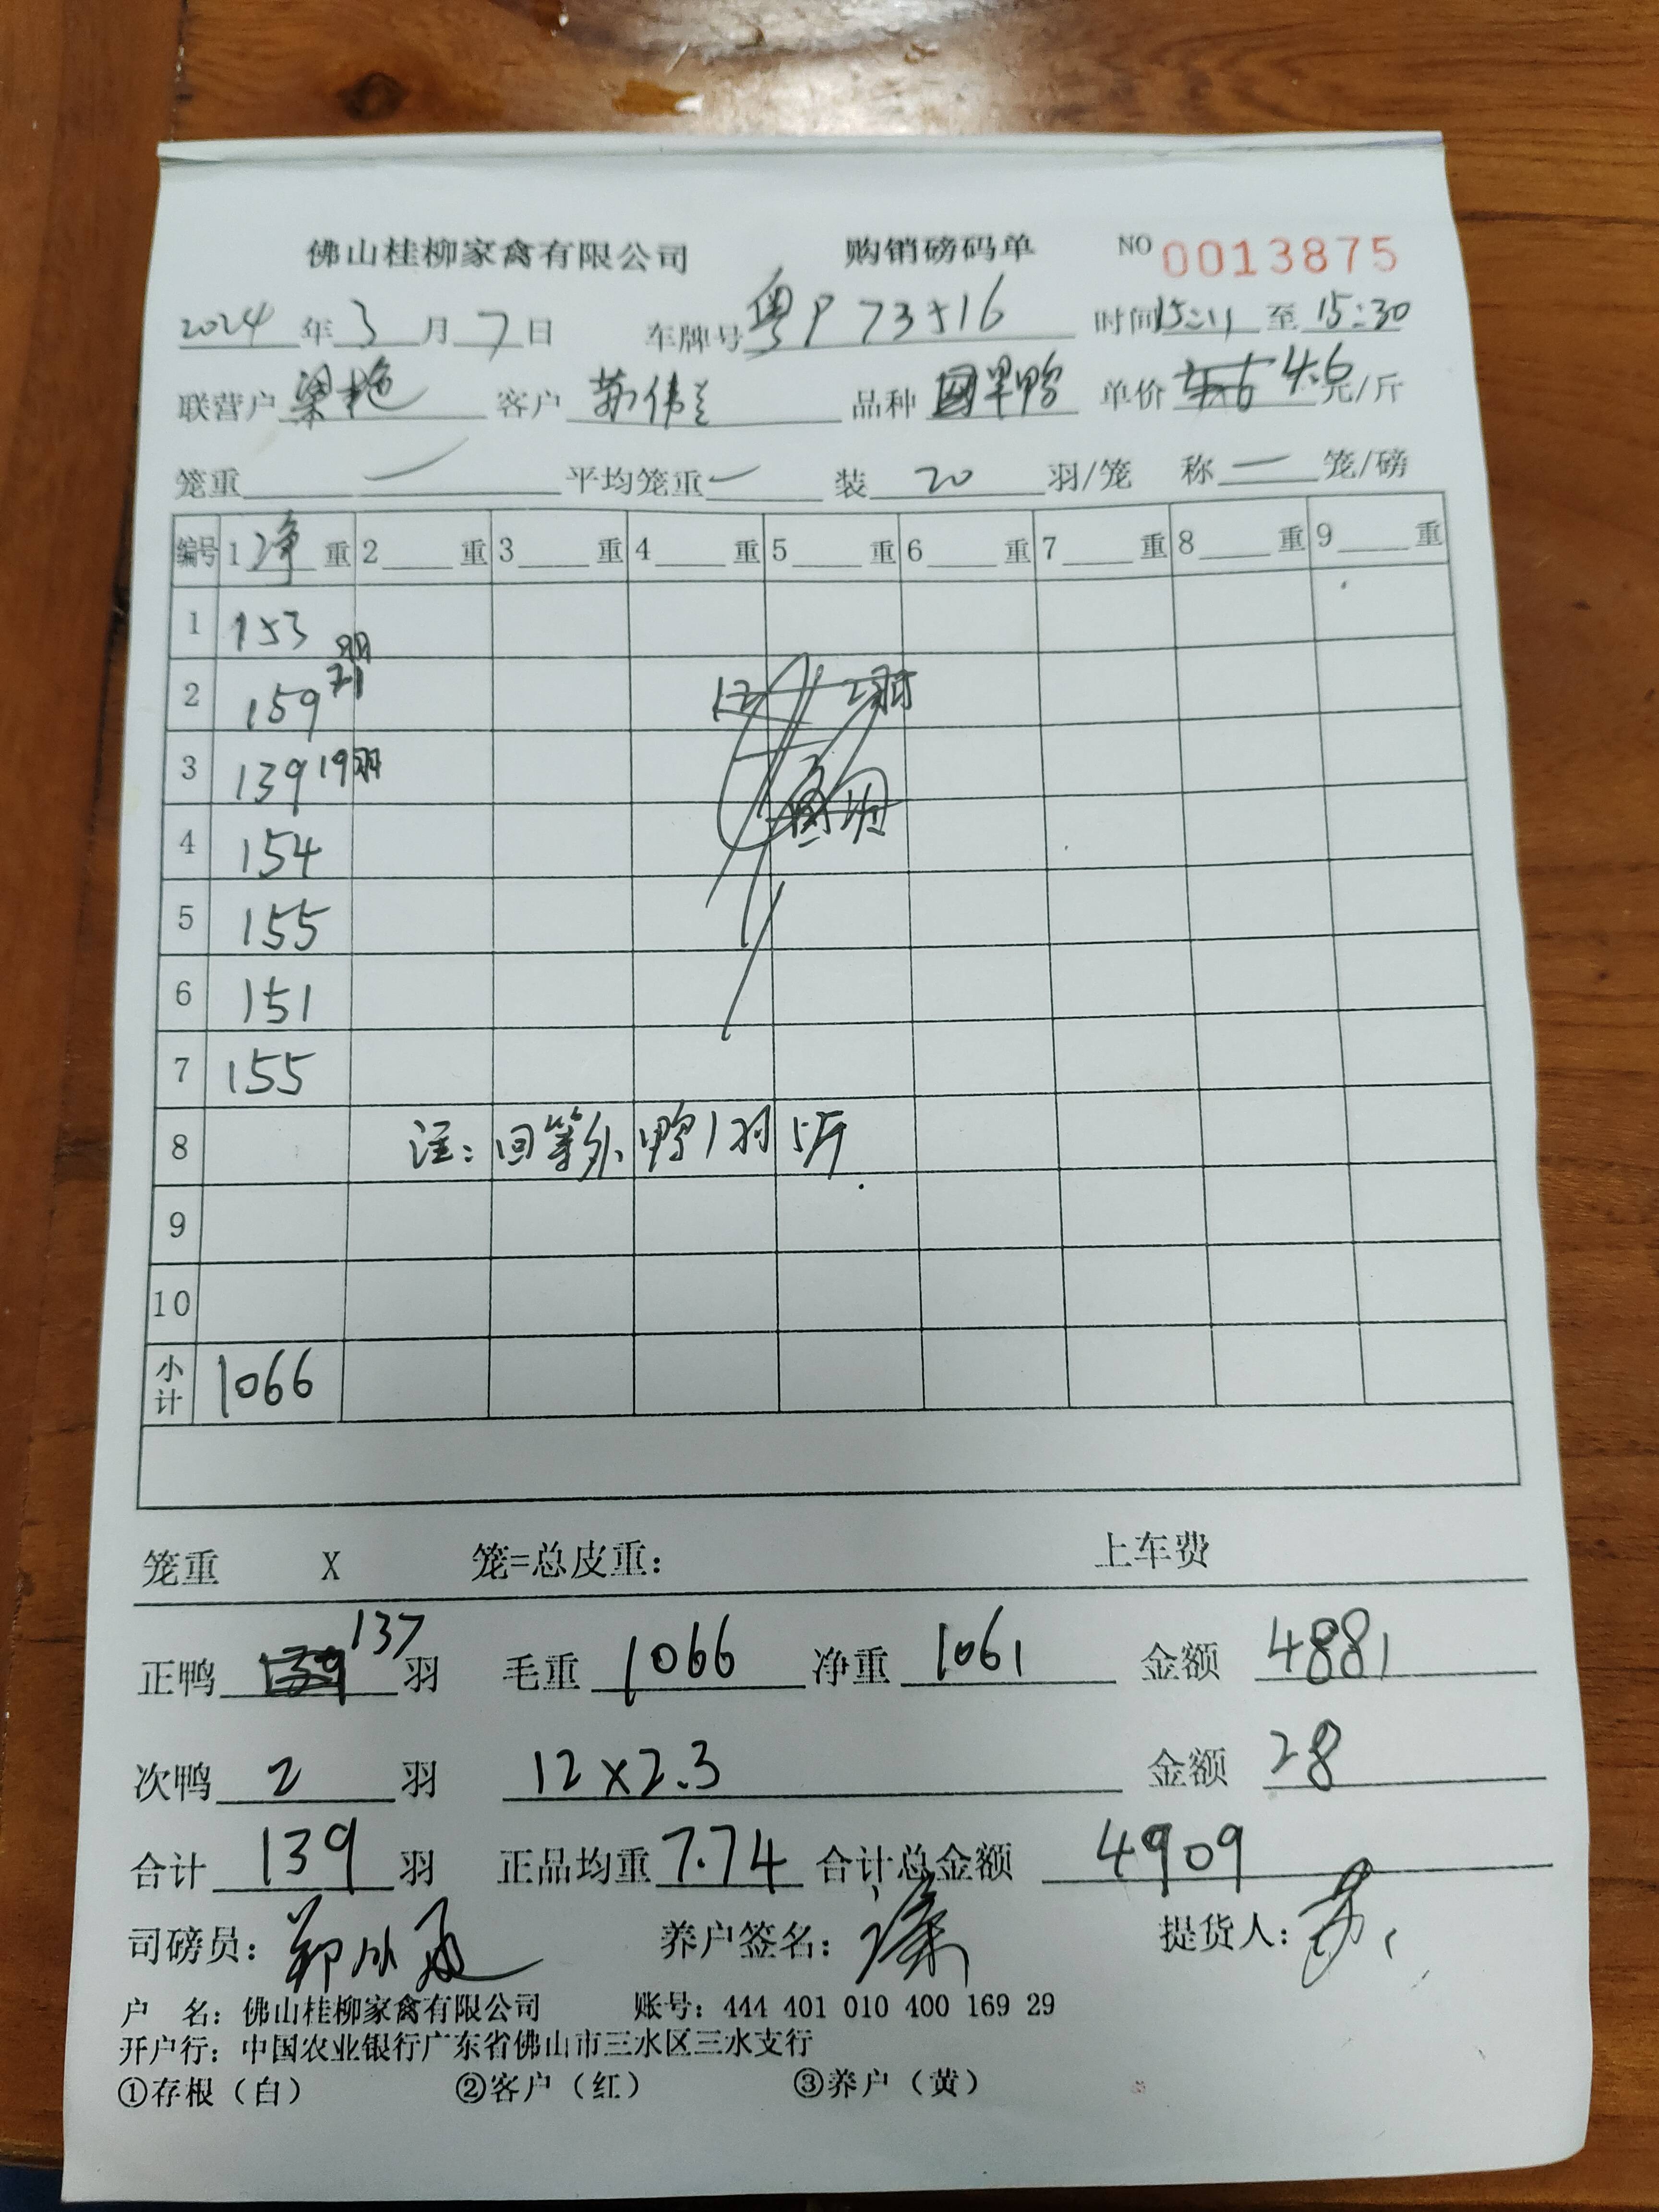 佛山桂柳家禽有限公司 购销磅码单 NO 0013875
2024年3月7日 车牌号粤P73516 时间15:11至15:30
联营户梁艳 客户 苏伟兰 品种 旱鸭 单价 4.6元/斤
笼重 一 平均笼重一 装 20 羽/笼 称一笼/磅
编号 1净重 2 重 3 重 4 重 5 重 6 重 7 重 8 重 9 重
1 153
2 159
3 139 19羽
4 154
5 155
6 151
7 155
8 注:回等外鸭1羽5斤
9
10
小计 1066
笼重 X 笼=总皮重: 上车费
正鸭 137 羽 毛重 1066 净重 1061 金额 4881
次鸭 2 羽 12×2.3 金额 28
合计 139 羽 正品均重 7.74 合计总金额 4909
司磅员: 养户签名: 提货人:
户 名: 佛山桂柳家禽有限公司 账号: 444 401 010 400 169 29
开户行: 中国农业银行广东省佛山市三水区三水支行
①存根(白) ②客户(红) ③养户(黄)